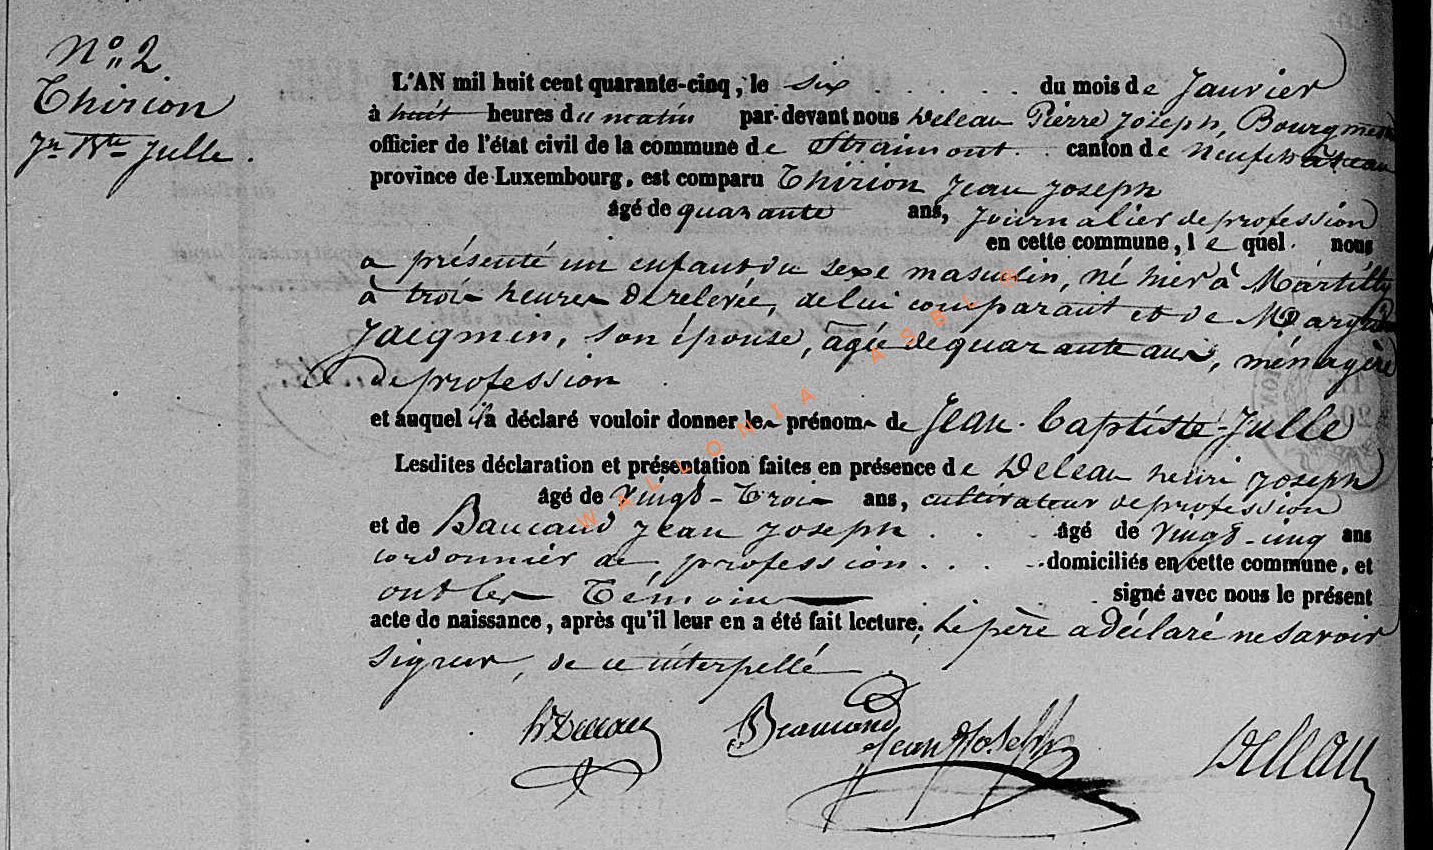 N° 2
Thirion
Jn Bte Julle.
L'AN mil huit cent quarante-cinq, le six . . . . . . du mois de Janvier
à huit heures du matin par-devant nous Deleau Pierre Joseph, Bourgmestre
officier de l'état civil de la commune de Straimont . . canton de Neufchateau
province de Luxembourg, est comparu Thirion Jean Joseph
âgé de quarante ans, Journalier de profession
en cette commune, lequel nous
a présenté un enfant du sexe masculin, né hier à Martilly
à trois heures de relevée, de lui comparant et de
Jacqmin, son épouse, âgée de quarante ans, ménagère
de profession
et auquel il a déclaré vouloir donner les prénoms de Jean-baptiste-Julle
Lesdites déclaration et présentation faites en présence de Deleau henri Joseph
âgé de Vingt-Trois ans, cultivateur de profession
et de Jean Joseph . . . âgé de Vingt-cinq ans
cordonnier de profession . . . domiciliés en cette commune, et
ont les Témoins signé avec nous le présent
acte de naissance, après qu'il leur en a été fait lecture. Le père a déclaré ne savoir
signer, de ce interpellé
hr Deleau Jean Joseph Deleau
WALLONIA ASBL ©